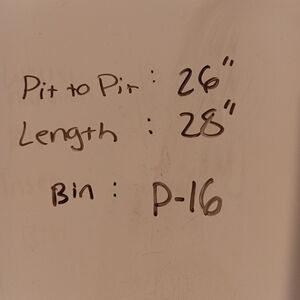 Pit to Pit: 26"
Length : 28"
Bin : P-16